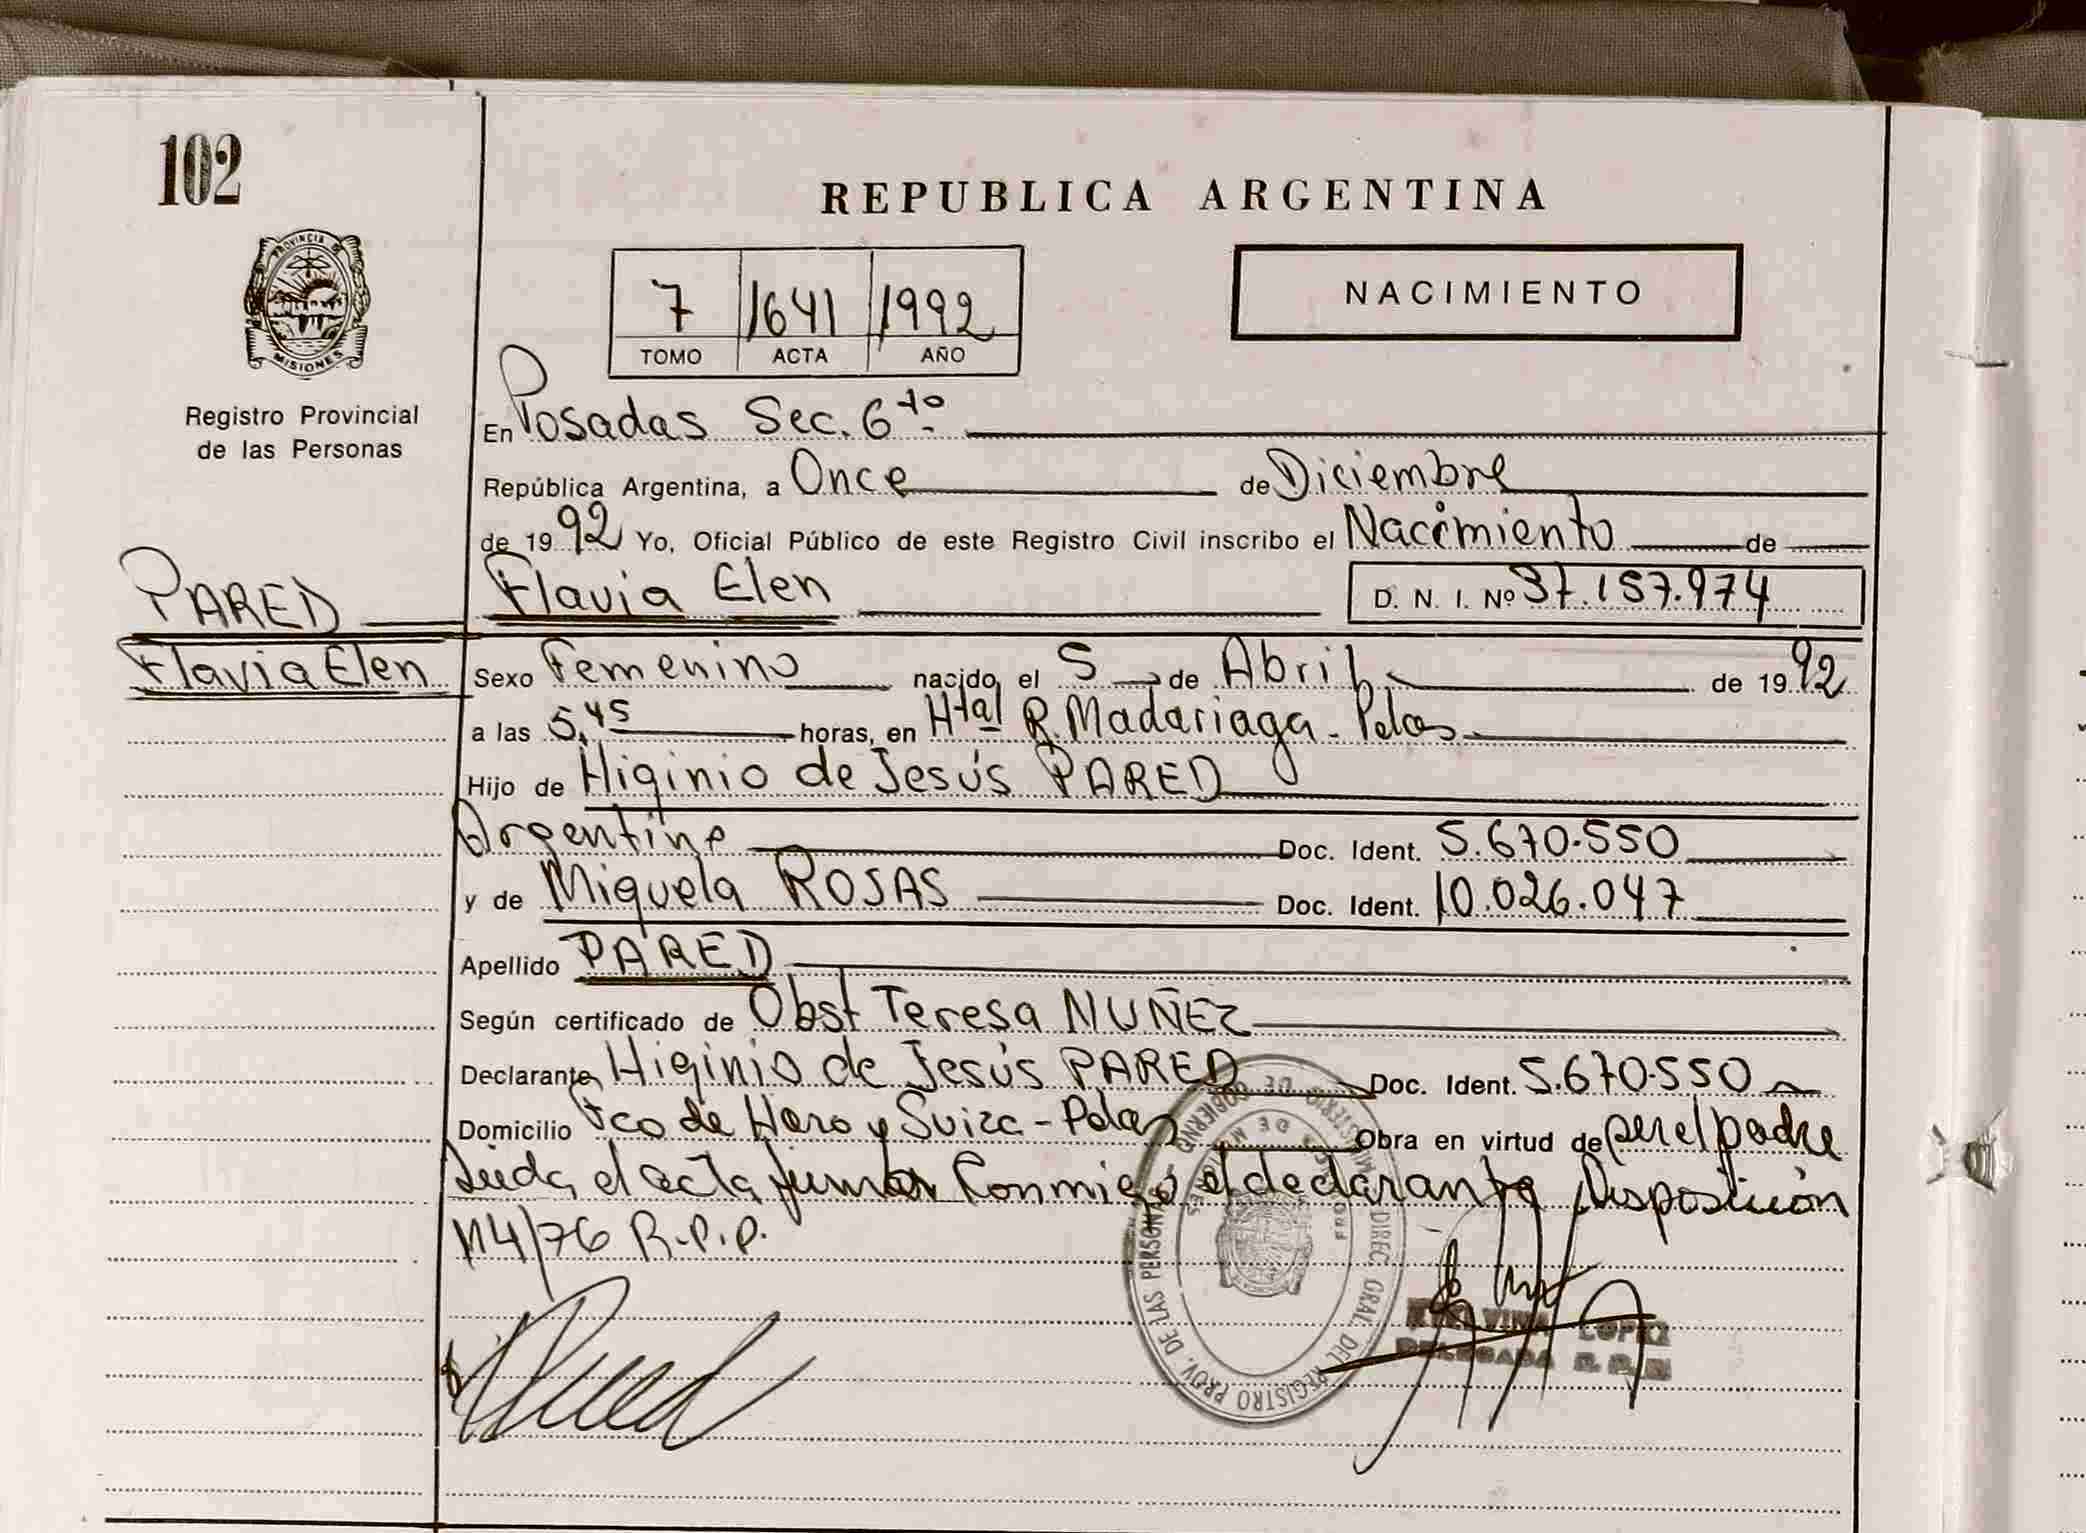 102
PROVINCIA DE
MISIONES
Registro Provincial
de las Personas
REPUBLICA ARGENTINA
7 1641 1992
TOMO ACTA AÑO
NACIMIENTO
En Posadas Sec. 6to
República Argentina, a Once de Diciembre
de 1992 Yo, Oficial Público de este Registro Civil inscribo el Nacimiento de
PARED Flavia Elen D. N. I. Nº 37.157.974
Flavia Elen Sexo Femenino nacido el 5 de Abril de 1992
a las 5,45 horas, en Htal R. Madariaga - Pdas
Hijo de Higinio de Jesús PARED
Argentino Doc. Ident. 5.670.550
y de Miguela ROSAS Doc. Ident. 10.026.047
Apellido PARED
Según certificado de Obst Teresa NUÑEZ
Declarante Higinio de Jesús PARED Doc. Ident. 5.670.550
Domicilio Fco de Haro y Suiza - Pdas Obra en virtud de ser el padre
Leida el acta firma Conmigo el declarante Disposición
114/76 R.P.P.
MINISTERIO DE GOBIERNO
DIREC. GRAL. DEL REGISTRO PROV. DE LAS PERSONAS
LOPEZ
DELEGADA